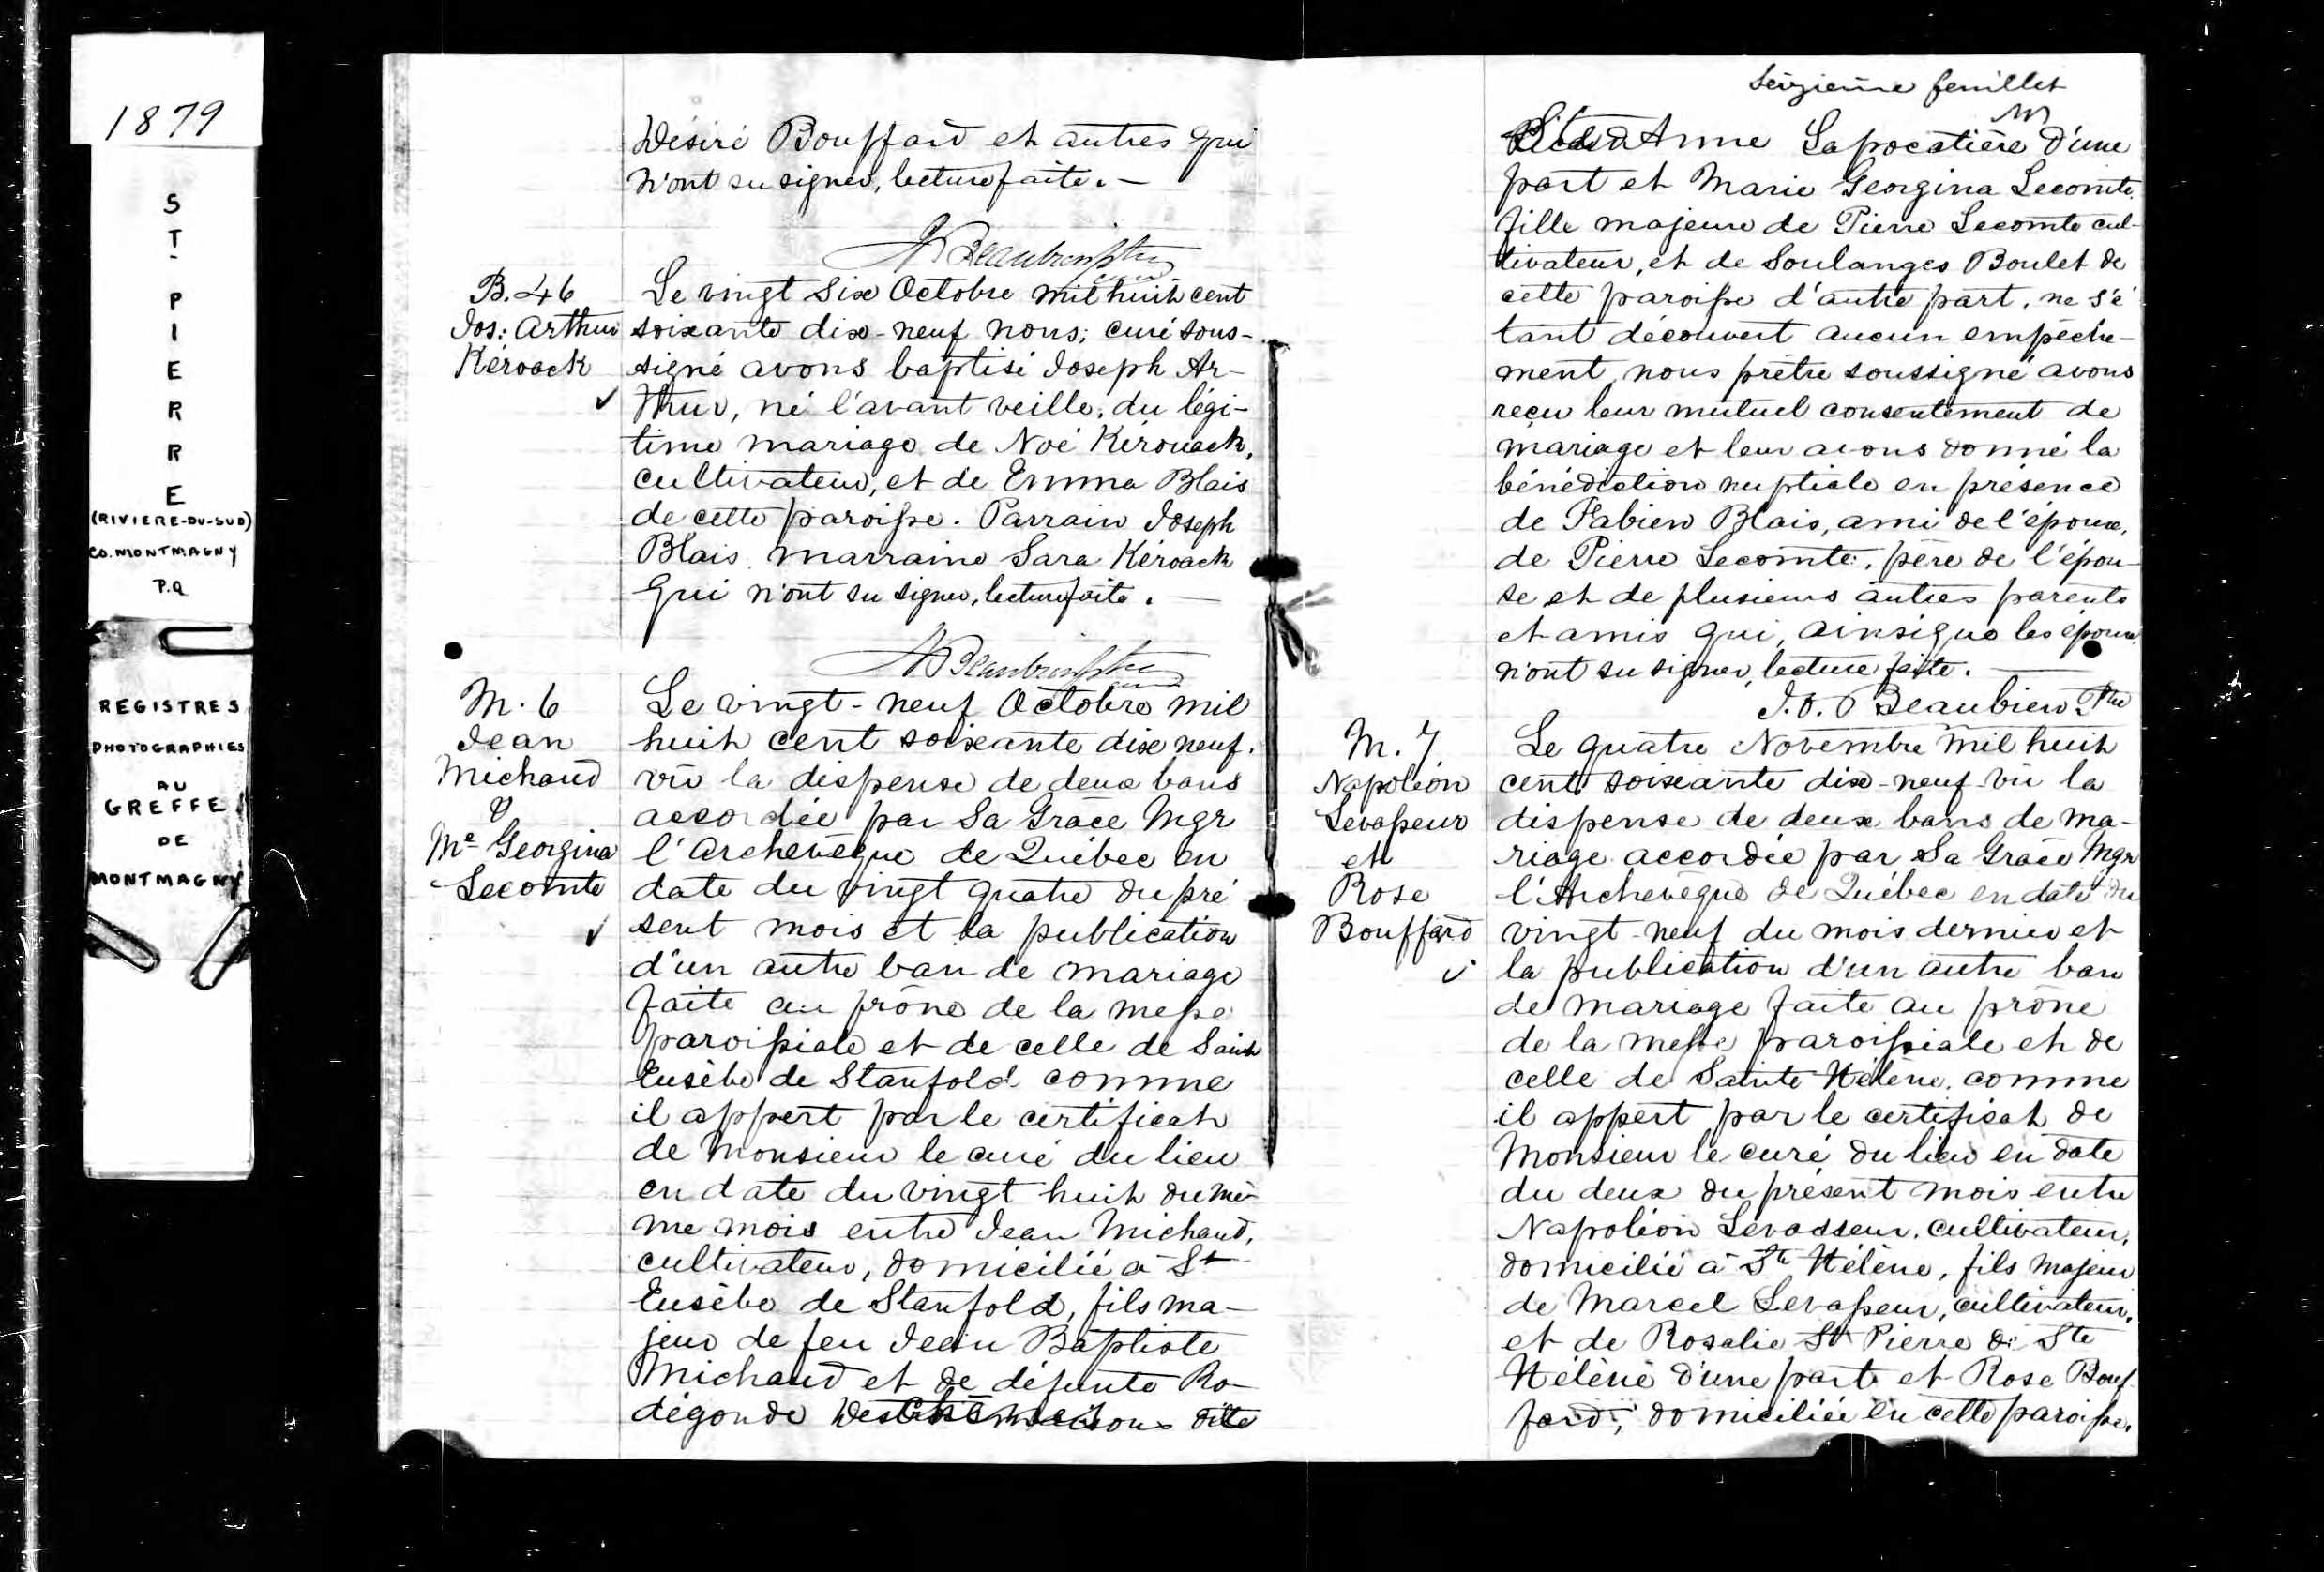 1879
ST- PIERRE
(RIVIERE-DU-SUD)
CO. MONTMAGNY
P.Q
REGISTRES
PHOTOGRAPHIES
AU
GREFFE
DE
MONTMAGNY
Désiré Bouffard et autres qui
n'ont su signer, lecture faite. —
B. 46
Jos: Arthur
Kéroack
Le vingt six Octobre mil huit cent
soixante dix-neuf nous, curé sous-
signé avons baptisé Joseph Ar-
thur, né l'avant veille, du légi-
time mariage de Noé Kérouack,
cultivateur, et de Emma Blais
de cette paroisse. Parrain Joseph
Blais marraine Sara Kéroack
qui n'ont su signer, lecture faite. —
M. 6
Jean
Michaud
&
Me Georgina
Lecomte
Le vingt-neuf Octobre mil
huit cent soixante dix neuf.
vû la dispense de deux bans
accordée par Sa Grâce Mgr
l'Archevêque de Québec en
date du vingt quatre du pré
sent mois et la publication
d'un autre ban de mariage
faite au prône de la messe
paroissiale et de celle de Saint
Eusèbe de Stanfold comme
il appert par le certificat
de Monsieur le curé du lieu
en date du vingt huit du mê-
me mois entre Jean Michaud,
cultivateur, domicilié à St
Eusèbe de Stanfold, fils ma-
jeur de feu Jean Baptiste
Michaud et de défunte Ra-
dégonde dite
Seizième feuillet
Ste Anne Lapocatière d'une
part et Marie Georgina Lecomte,
fille majeure de Pierre Lecomte cul-
tivateur, et de Soulanges Boulet de
cette paroisse d'autre part, ne s'é
tant découvert aucun empêche-
ment, nous prêtre soussigné avons
reçu leur mutuel consentement de
mariage et leur avons donné la
bénédiction nuptiale en présence
de Fabien Blais, ami de l'époux,
de Pierre Lecomte, père de l'épou-
se et de plusieurs autres parents
et amis qui, ainsi que les époux
n'ont su signer, lecture faite. —
J. O. Beaubien Ptre
M. 7
Napoléon
Levasseur
et
Rose
Bouffard
Le quatre Novembre mil huit
cent soixante dix-neuf vû la
dispense de deux bans de ma-
riage accordée par Sa Grâce Mgr
l'Archevêque de Québec en date du
vingt-neuf du mois dernier et
la publication d'un autre ban
de mariage faite au prône
de la messe paroissiale et de
celle de Sainte Hélène, comme
il appert par le certificat de
Monsieur le curé du lieu en date
du deux du présent mois entre
Napoléon Levasseur, cultivateur,
domicilié à Ste Hélène, fils majeur
de Marcel Levasseur, cultivateur,
et de Rosalie St Pierre de Ste
Hélène d'une part et Rose Bouf-
fard, domiciliée en cette paroisse,